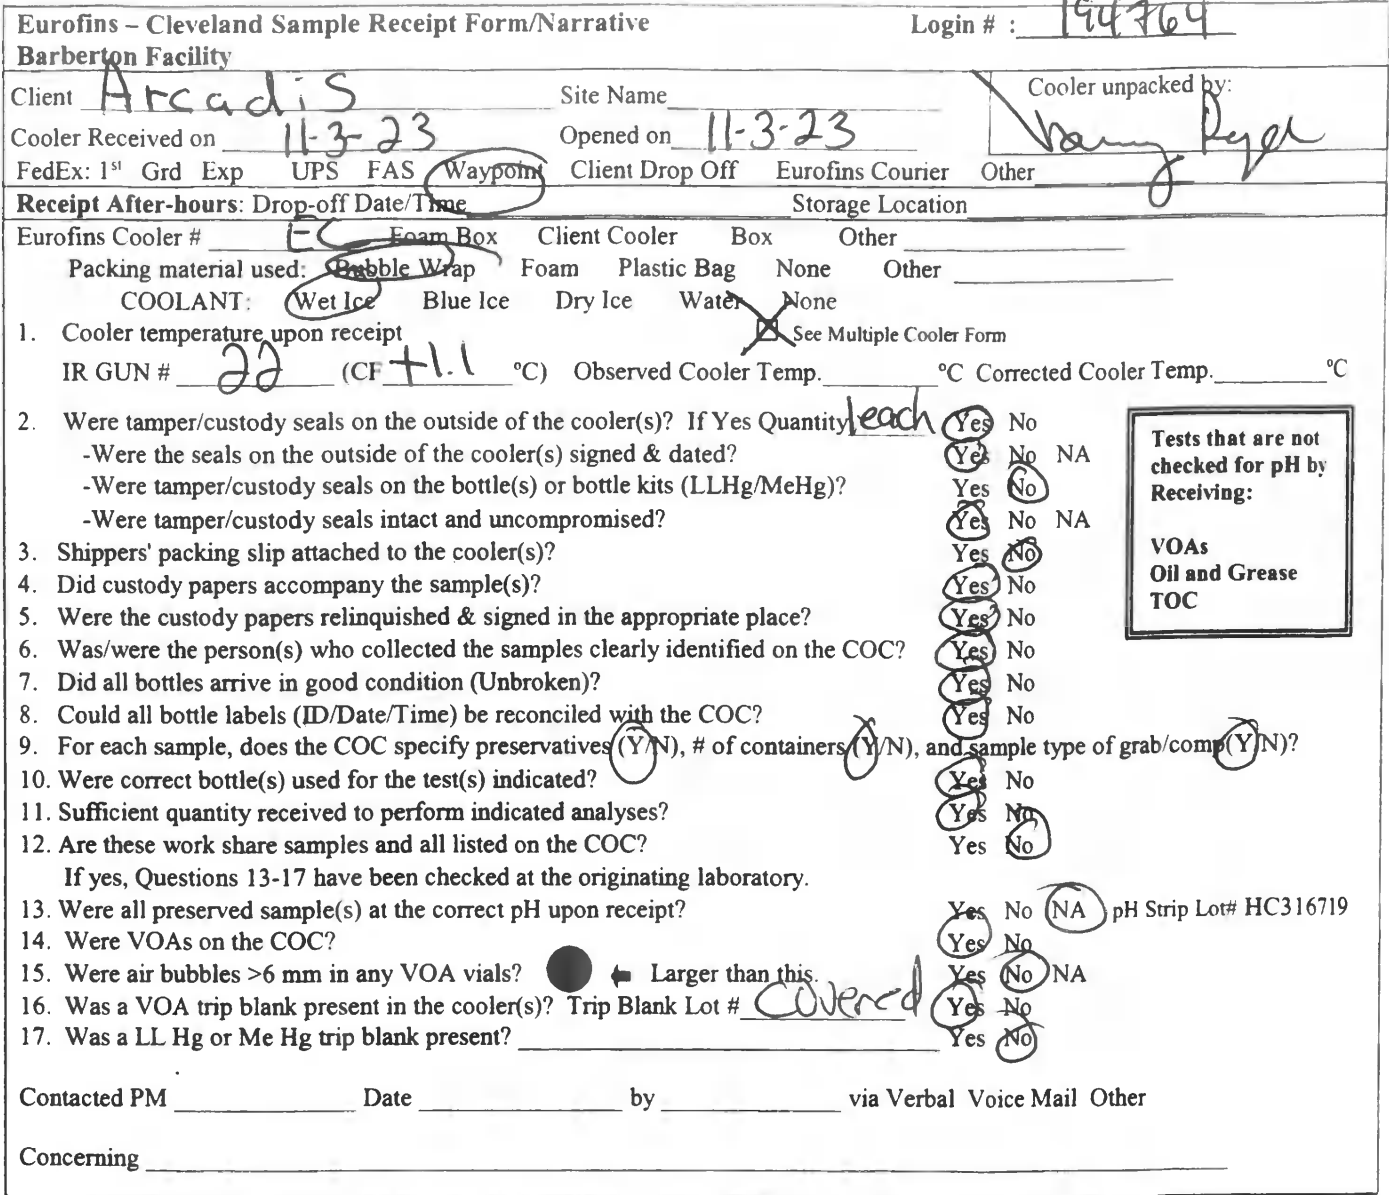 Eurofins – Cleveland Sample Receipt Form/Narrative Login # : 194764
Barberton Facility
Client Arcadis Site Name Cooler unpacked by:
Cooler Received on 11-3-23 Opened on 11-3-23
FedEx: 1st Grd Exp UPS FAS Waypoint Client Drop Off Eurofins Courier Other
Receipt After-hours: Drop-off Date/Time Storage Location
Eurofins Cooler # EC Foam Box Client Cooler Box Other
Packing material used: Bubble Wrap Foam Plastic Bag None Other
COOLANT: Wet Ice Blue Ice Dry Ice Water None
1. Cooler temperature upon receipt See Multiple Cooler Form
IR GUN # 22 (CF +1.1 °C) Observed Cooler Temp. °C Corrected Cooler Temp. °C
2. Were tamper/custody seals on the outside of the cooler(s)? If Yes Quantity 1 each Yes No
-Were the seals on the outside of the cooler(s) signed & dated? Yes No NA
-Were tamper/custody seals on the bottle(s) or bottle kits (LLHg/MeHg)? Yes No
-Were tamper/custody seals intact and uncompromised? Yes No NA
3. Shippers' packing slip attached to the cooler(s)? Yes No
4. Did custody papers accompany the sample(s)? Yes No
5. Were the custody papers relinquished & signed in the appropriate place? Yes No
6. Was/were the person(s) who collected the samples clearly identified on the COC? Yes No
7. Did all bottles arrive in good condition (Unbroken)? Yes No
8. Could all bottle labels (ID/Date/Time) be reconciled with the COC? Yes No
9. For each sample, does the COC specify preservatives (Y/N), # of containers (Y/N), and sample type of grab/comp(Y/N)?
10. Were correct bottle(s) used for the test(s) indicated? Yes No
11. Sufficient quantity received to perform indicated analyses? Yes No
12. Are these work share samples and all listed on the COC? Yes No
If yes, Questions 13-17 have been checked at the originating laboratory.
13. Were all preserved sample(s) at the correct pH upon receipt? Yes No NA pH Strip Lot# HC316719
14. Were VOAs on the COC? Yes No
15. Were air bubbles >6 mm in any VOA vials? Larger than this. Yes No NA
16. Was a VOA trip blank present in the cooler(s)? Trip Blank Lot # Covered Yes No
17. Was a LL Hg or Me Hg trip blank present? Yes No
Tests that are not
checked for pH by
Receiving:
VOAs
Oil and Grease
TOC
Contacted PM Date by via Verbal Voice Mail Other
Concerning